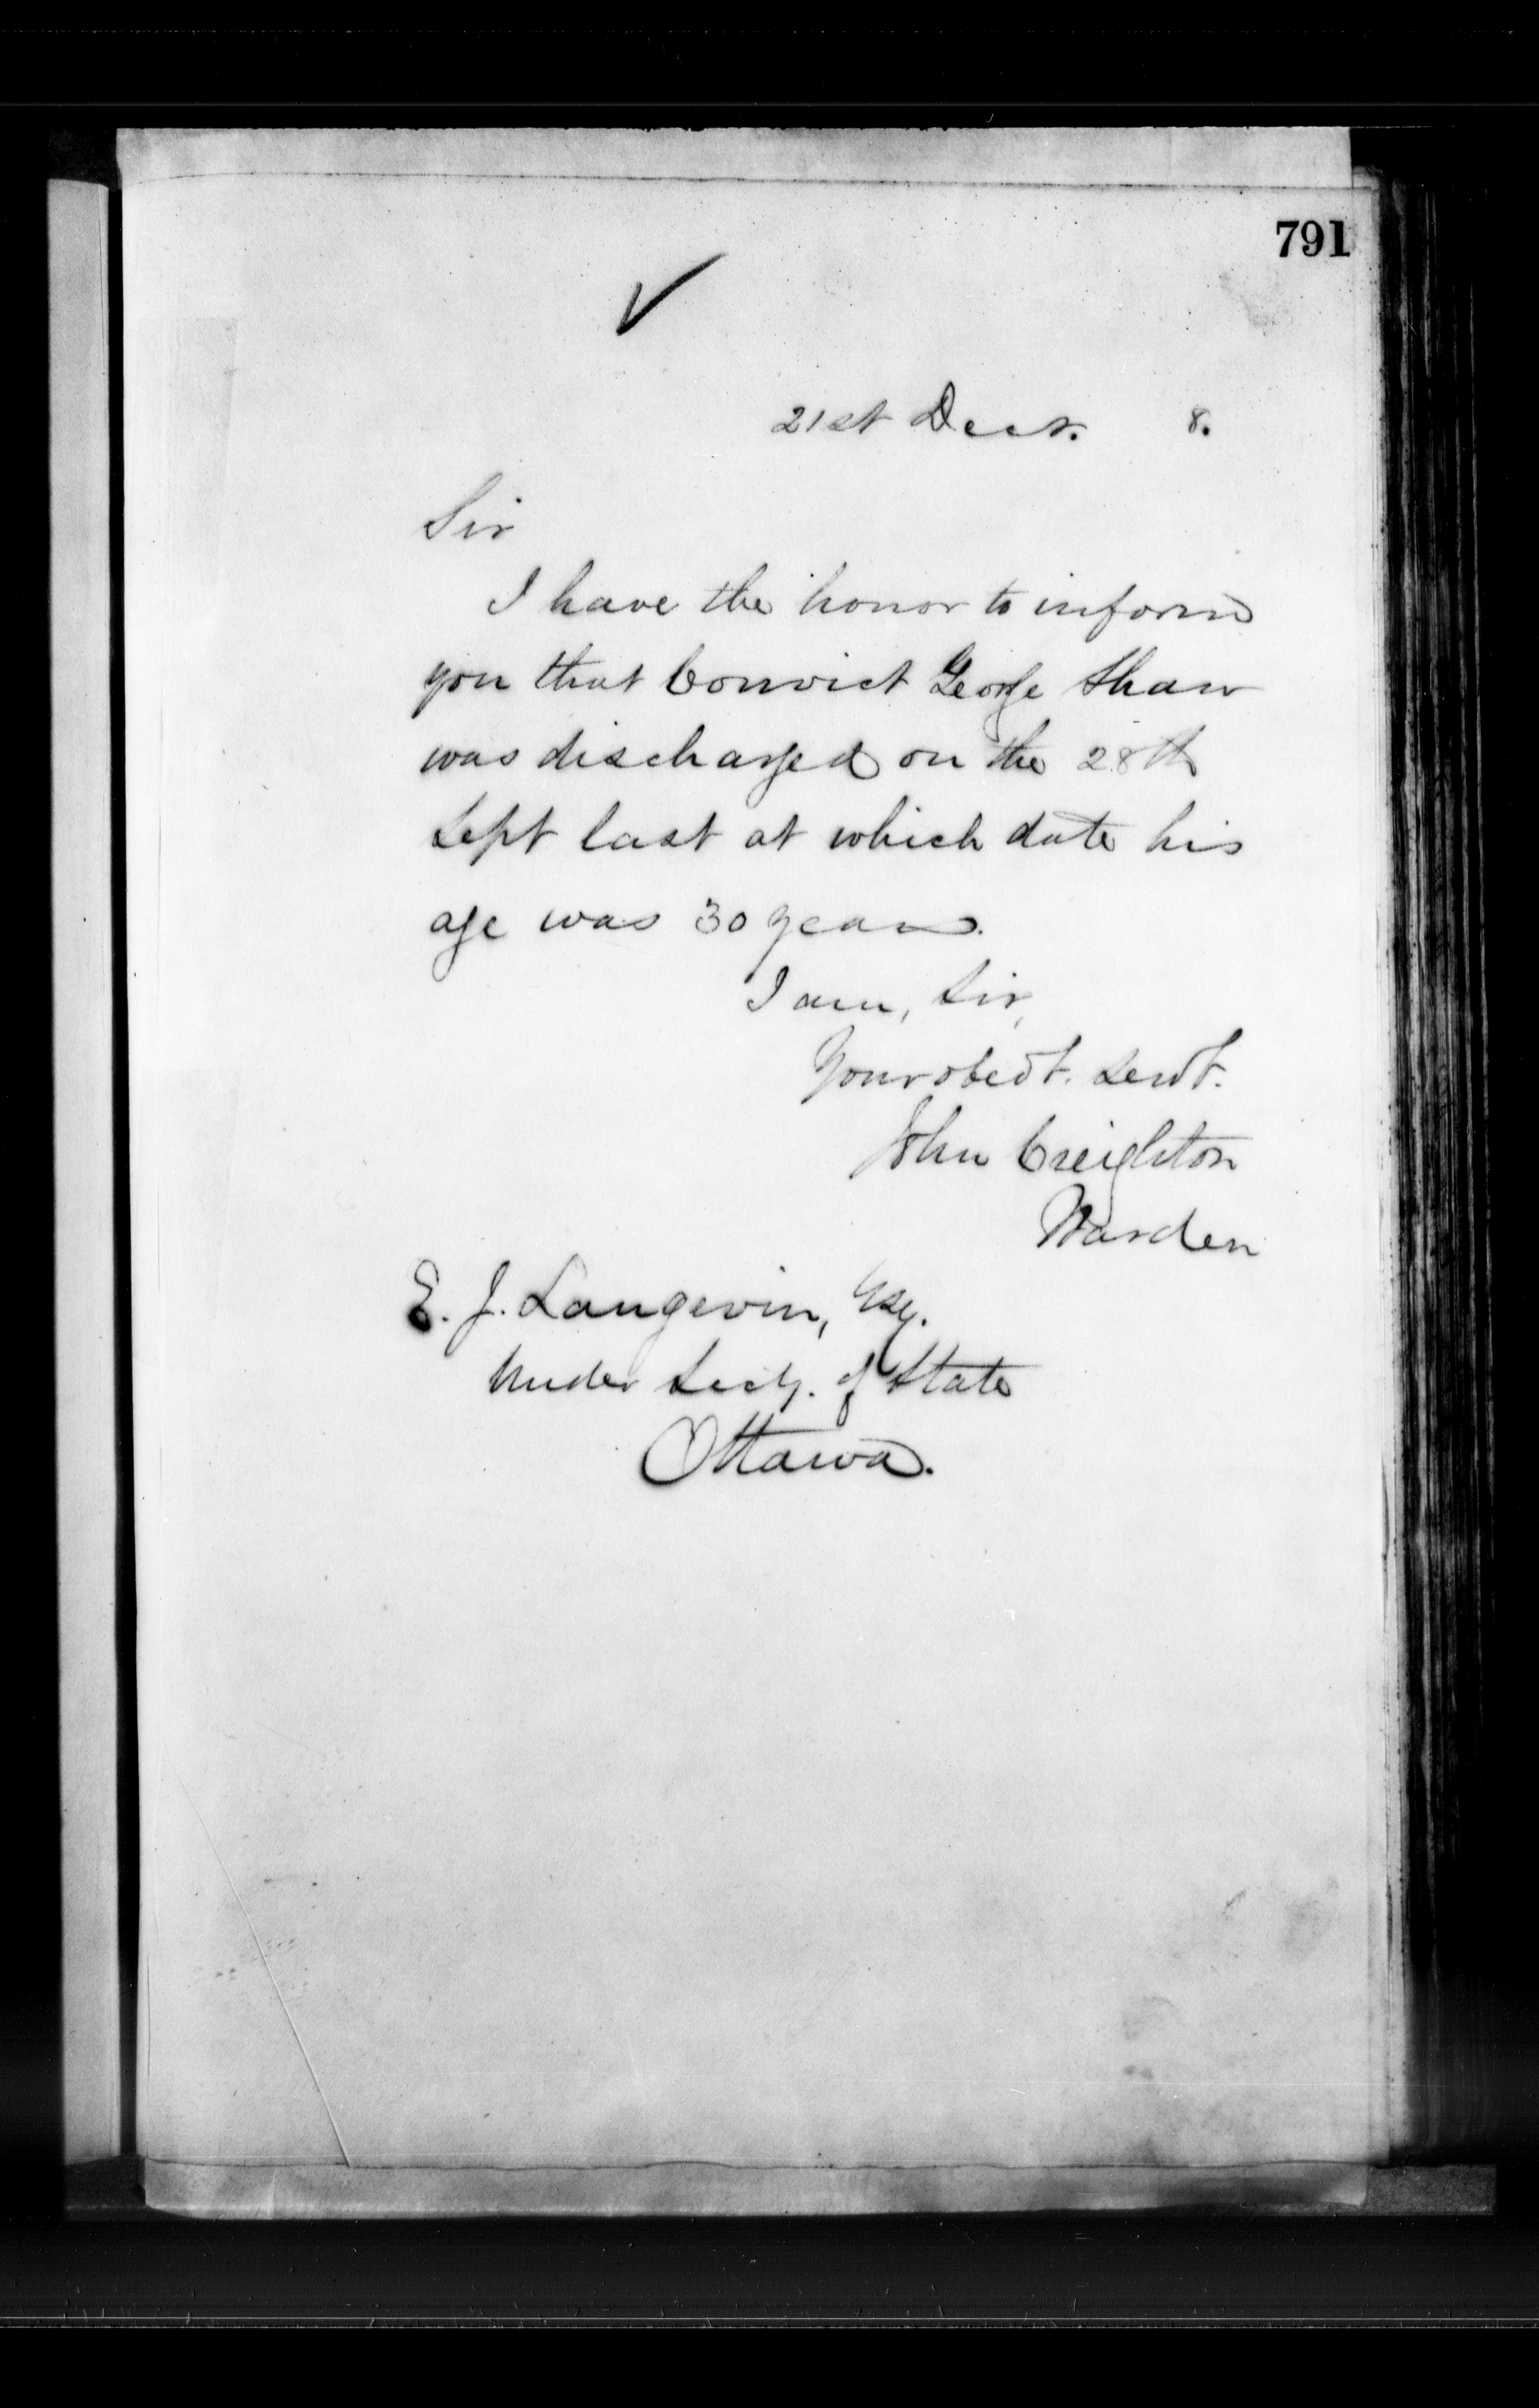 791
21st Decr. 8.
Sir
I have the honor to inform
you that Convict George Shaw
was discharged on the 28th
Sept last at which date his
age was 30 years.
I am, Sir,
Your obedt. servt.
John Creighton
Warden
E. J. Langevin, Esq.
Under Secy. of State
Ottawa.